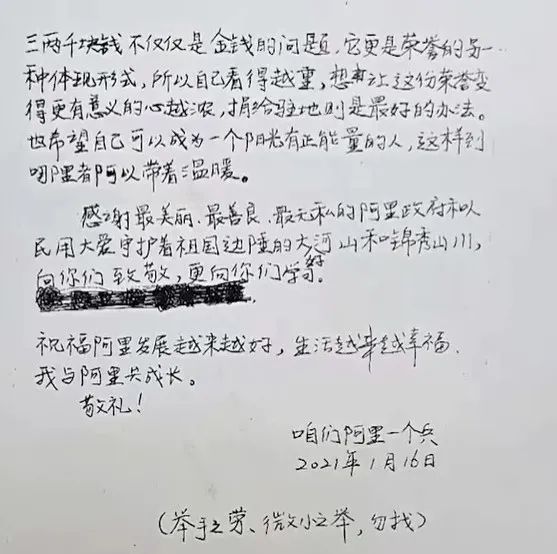 三两千块钱不仅仅是金钱的问题，它更是荣誉的另一
种体现形式，所以自己看得越重，想让这份荣誉变
得更有意义的心越浓，捐给驻地则是最好的办法。
也希望自己可以成为一个阳光有正能量的人，这样到
哪里都可以带着温暖。
感谢最美丽、最善良、最无私的阿里政府和人
民用大爱守护着祖国边陲的大河山和锦秀山川，
向你们致敬，更向你们学习。
祝福阿里发展越来越好，生活越来越幸福.
我与阿里共成长。
敬礼！
咱们阿里一个兵
2021年1月16日
（举手之劳、微小之举，勿找）